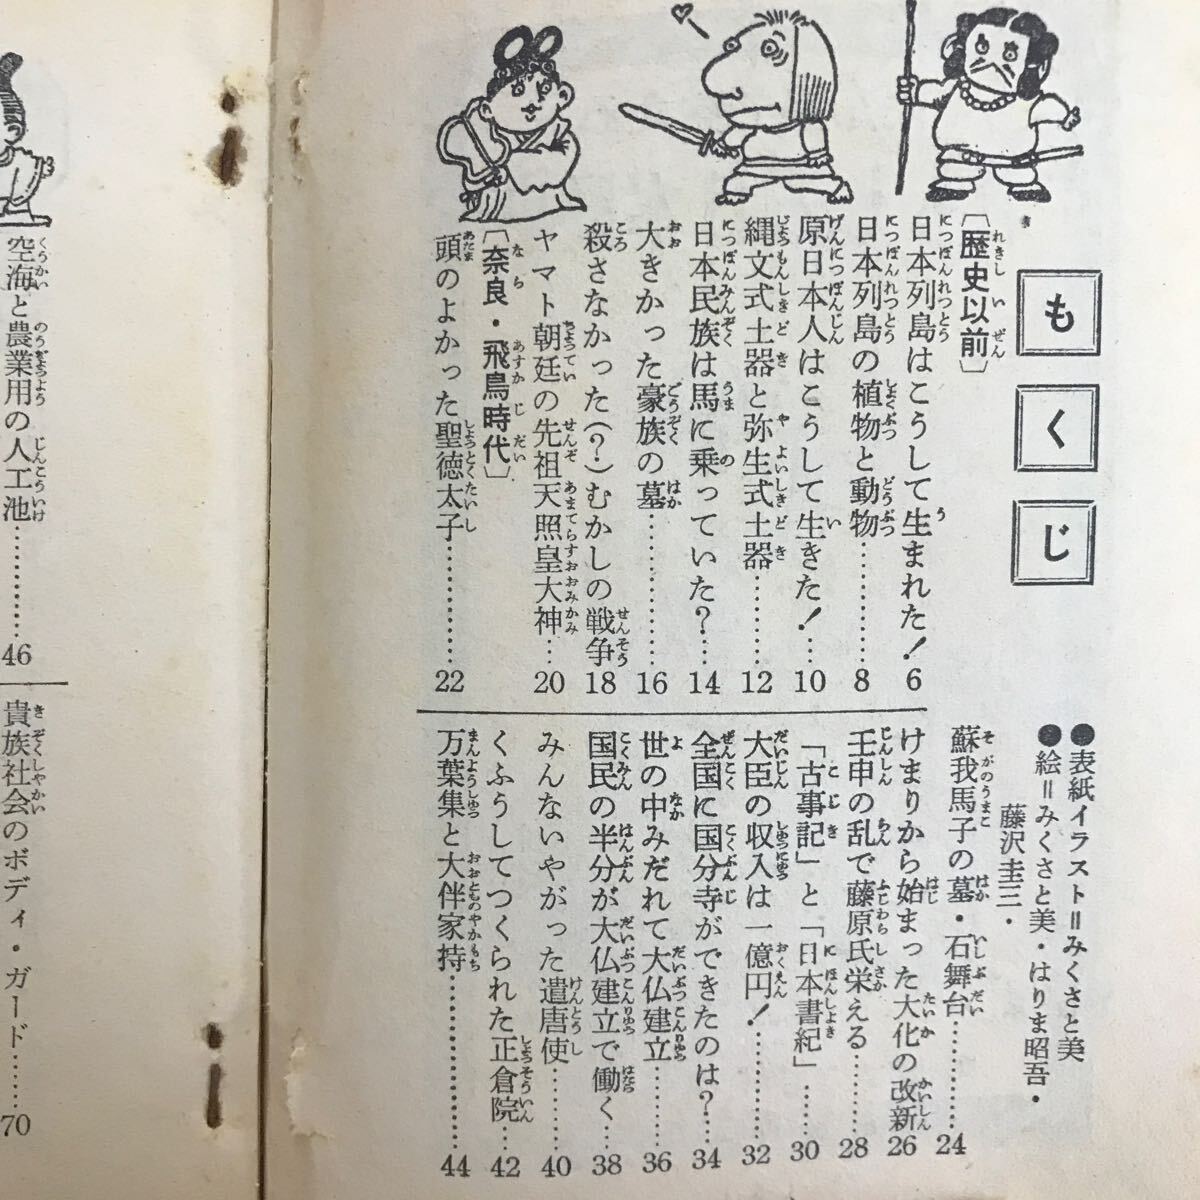 もくじ
〔歴史以前〕
日本列島はこうして生まれた！ 6
日本列島の植物と動物……… 8
原日本人はこうして生きた！… 10
縄文式土器と弥生式土器……… 12
日本民族は馬に乗っていた？… 14
大きかった豪族の墓………… 16
殺さなかった(？)むかしの戦争 18
ヤマト朝廷の先祖天照皇大神… 20
〔奈良・飛鳥時代〕
頭のよかった聖徳太子………… 22
●表紙イラスト＝みくさと美
●絵＝みくさと美・はりま昭吾・
藤沢圭三・
蘇我馬子の墓・石舞台………… 24
けまりから始まった大化の改新 26
壬申の乱で藤原氏栄える……… 28
「古事記」と「日本書紀」…… 30
大臣の収入は一億円！………… 32
全国に国分寺ができたのは？… 34
世の中みだれて大仏建立……… 36
国民の半分が大仏建立で働く… 38
みんないやがった遣唐使……… 40
くふうしてつくられた正倉院… 42
万葉集と大伴家持……………… 44
空海と農業用の人工池………… 46
貴族社会のボディ・ガード…… 70